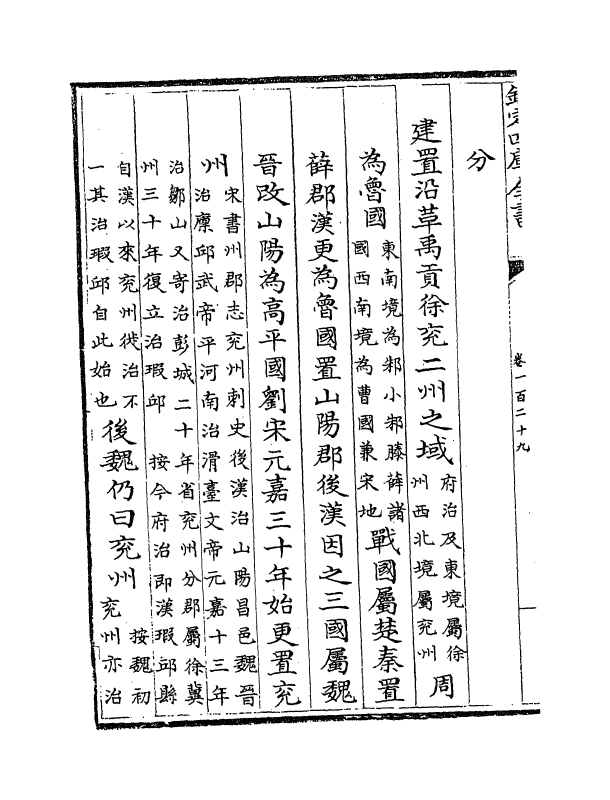 欽定四庫全書
卷一百二十九
分
建置沿革禹貢徐兖二州之域府治及東境屬徐州西北境屬兖州周
為魯國東南境為邾小邾滕薛諸國西南境為曹國兼宋地戰國屬楚秦置
薛郡漢更為魯國置山陽郡後漢因之三國屬魏
晉改山陽為高平國劉宋元嘉三十年始更置兖
州宋書州郡志兖州刺史後漢治山陽昌邑魏晉治廩邱武帝平河南治滑臺文帝元嘉十三年
治鄒山又寄治彭城二十年省兖州分郡屬徐冀州三十年復立治瑕邱 按今府治即漢瑕邱縣
自漢以來兖州徙治不一其治瑕邱自此始也後魏仍曰兖州按魏初兖州亦治